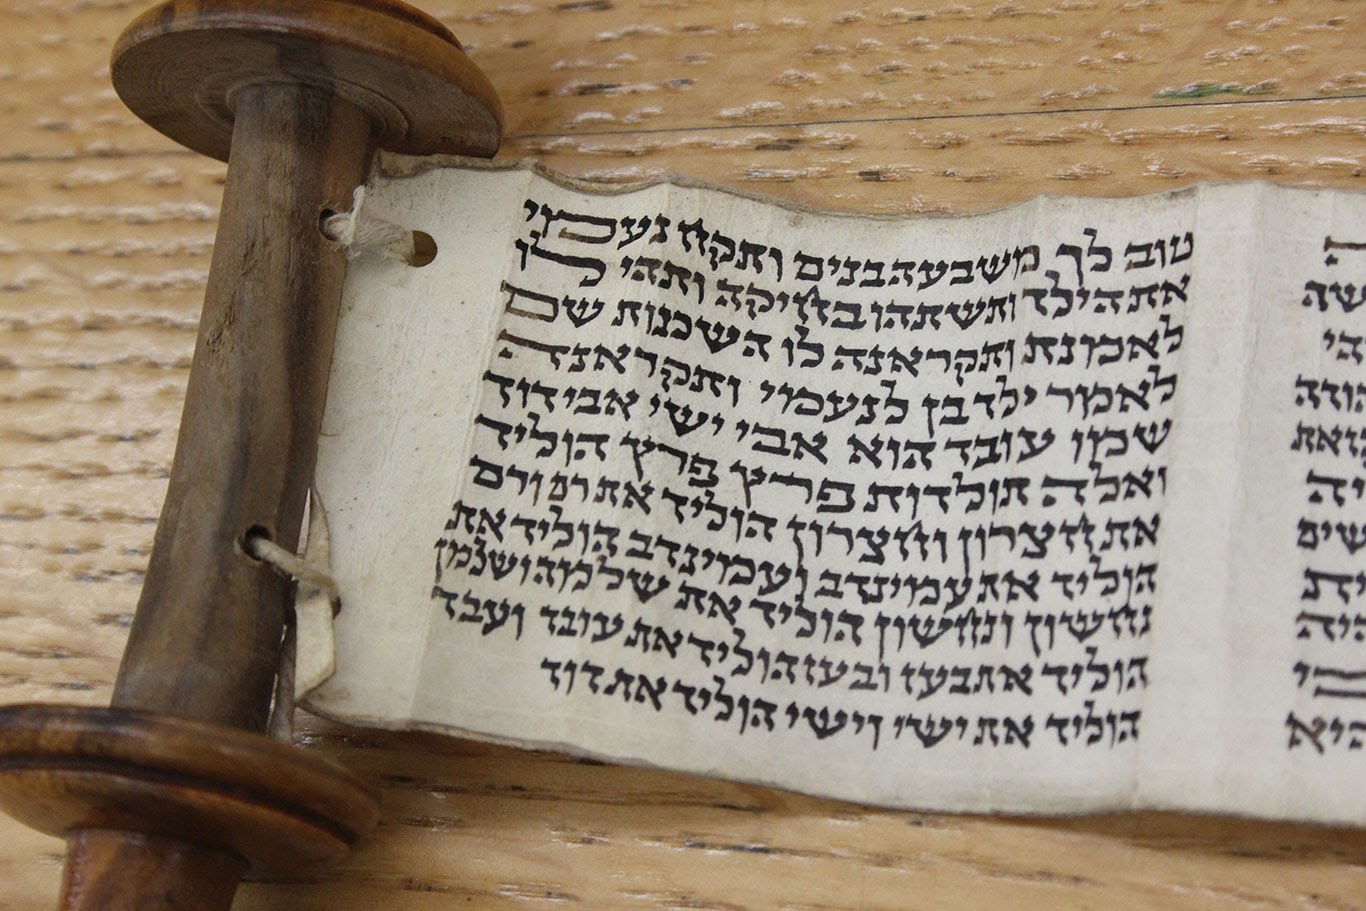 טוב לך משבעה בנים ותקח נעמי
את הילד ותשתהו בחיקה ותהי לו
לאמנת ותקראנה לו השכנות שם
לאמר ילד בן לנעמי ותקראנה
שמו עובד הוא אבי ישי אבי דוד
ואלה תולדות פרץ פרץ הוליד
את חצרון וחצרון הוליד את רם ורם
הוליד את עמינדב ועמינדב הוליד את
נחשון ונחשון הוליד את שלמה ושלמון
הוליד את בעז ובעז הוליד את עובד ועבד
הוליד את ישי וישי הוליד את דוד